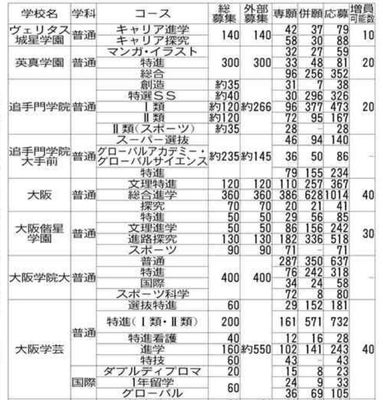 学校名 学科 コース 総募集 外部募集 専願 併願 応募 増員可能数
ヴェリタス城星学園 普通 キャリア進学 140 140 42 37 79 10
キャリア探究 58 30 88
英真学園 普通 マンガ・イラスト 300 300 32 27 59 20
特進 33 48 81
総合 96 256 352
追手門学院 普通 創造 約35 約266 31 7 38 20
特選SS 約40 30 296 326
Ⅰ類 約120 96 377 473
Ⅱ類 約120 72 95 167
Ⅱ類(スポーツ) 約35 28 − 28
追手門学院大手前 普通 スーパー選抜 約235 約145 46 94 140
グローバルアカデミー・グローバルサイエンス 36 50 86
特進 79 155 234
大阪 普通 文理特進 120 120 110 257 367 40
総合進学 360 360 386 628 1014
探究 70 70 20 21 41
大阪偕星学園 普通 特進 50 50 29 56 85 30
文理進学 50 50 86 156 242
進路探究 130 130 182 336 518
スポーツ 90 90 71 − 71
大阪学院大 普通 普通 400 400 287 350 637
特進 76 242 318
国際 34 24 58
スポーツ科学 72 8 80
大阪学芸 普通 選抜特進 60 約550 29 152 181 40
特進(Ⅰ類・Ⅱ類) 200 161 571 732
特進看護 40 12 16 28
進学 160 102 141 243
特技 60 43 − 43
ダブルディプロマ 20 15 8 23
国際 1年留学 60 24 9 33
グローバル 36 69 105